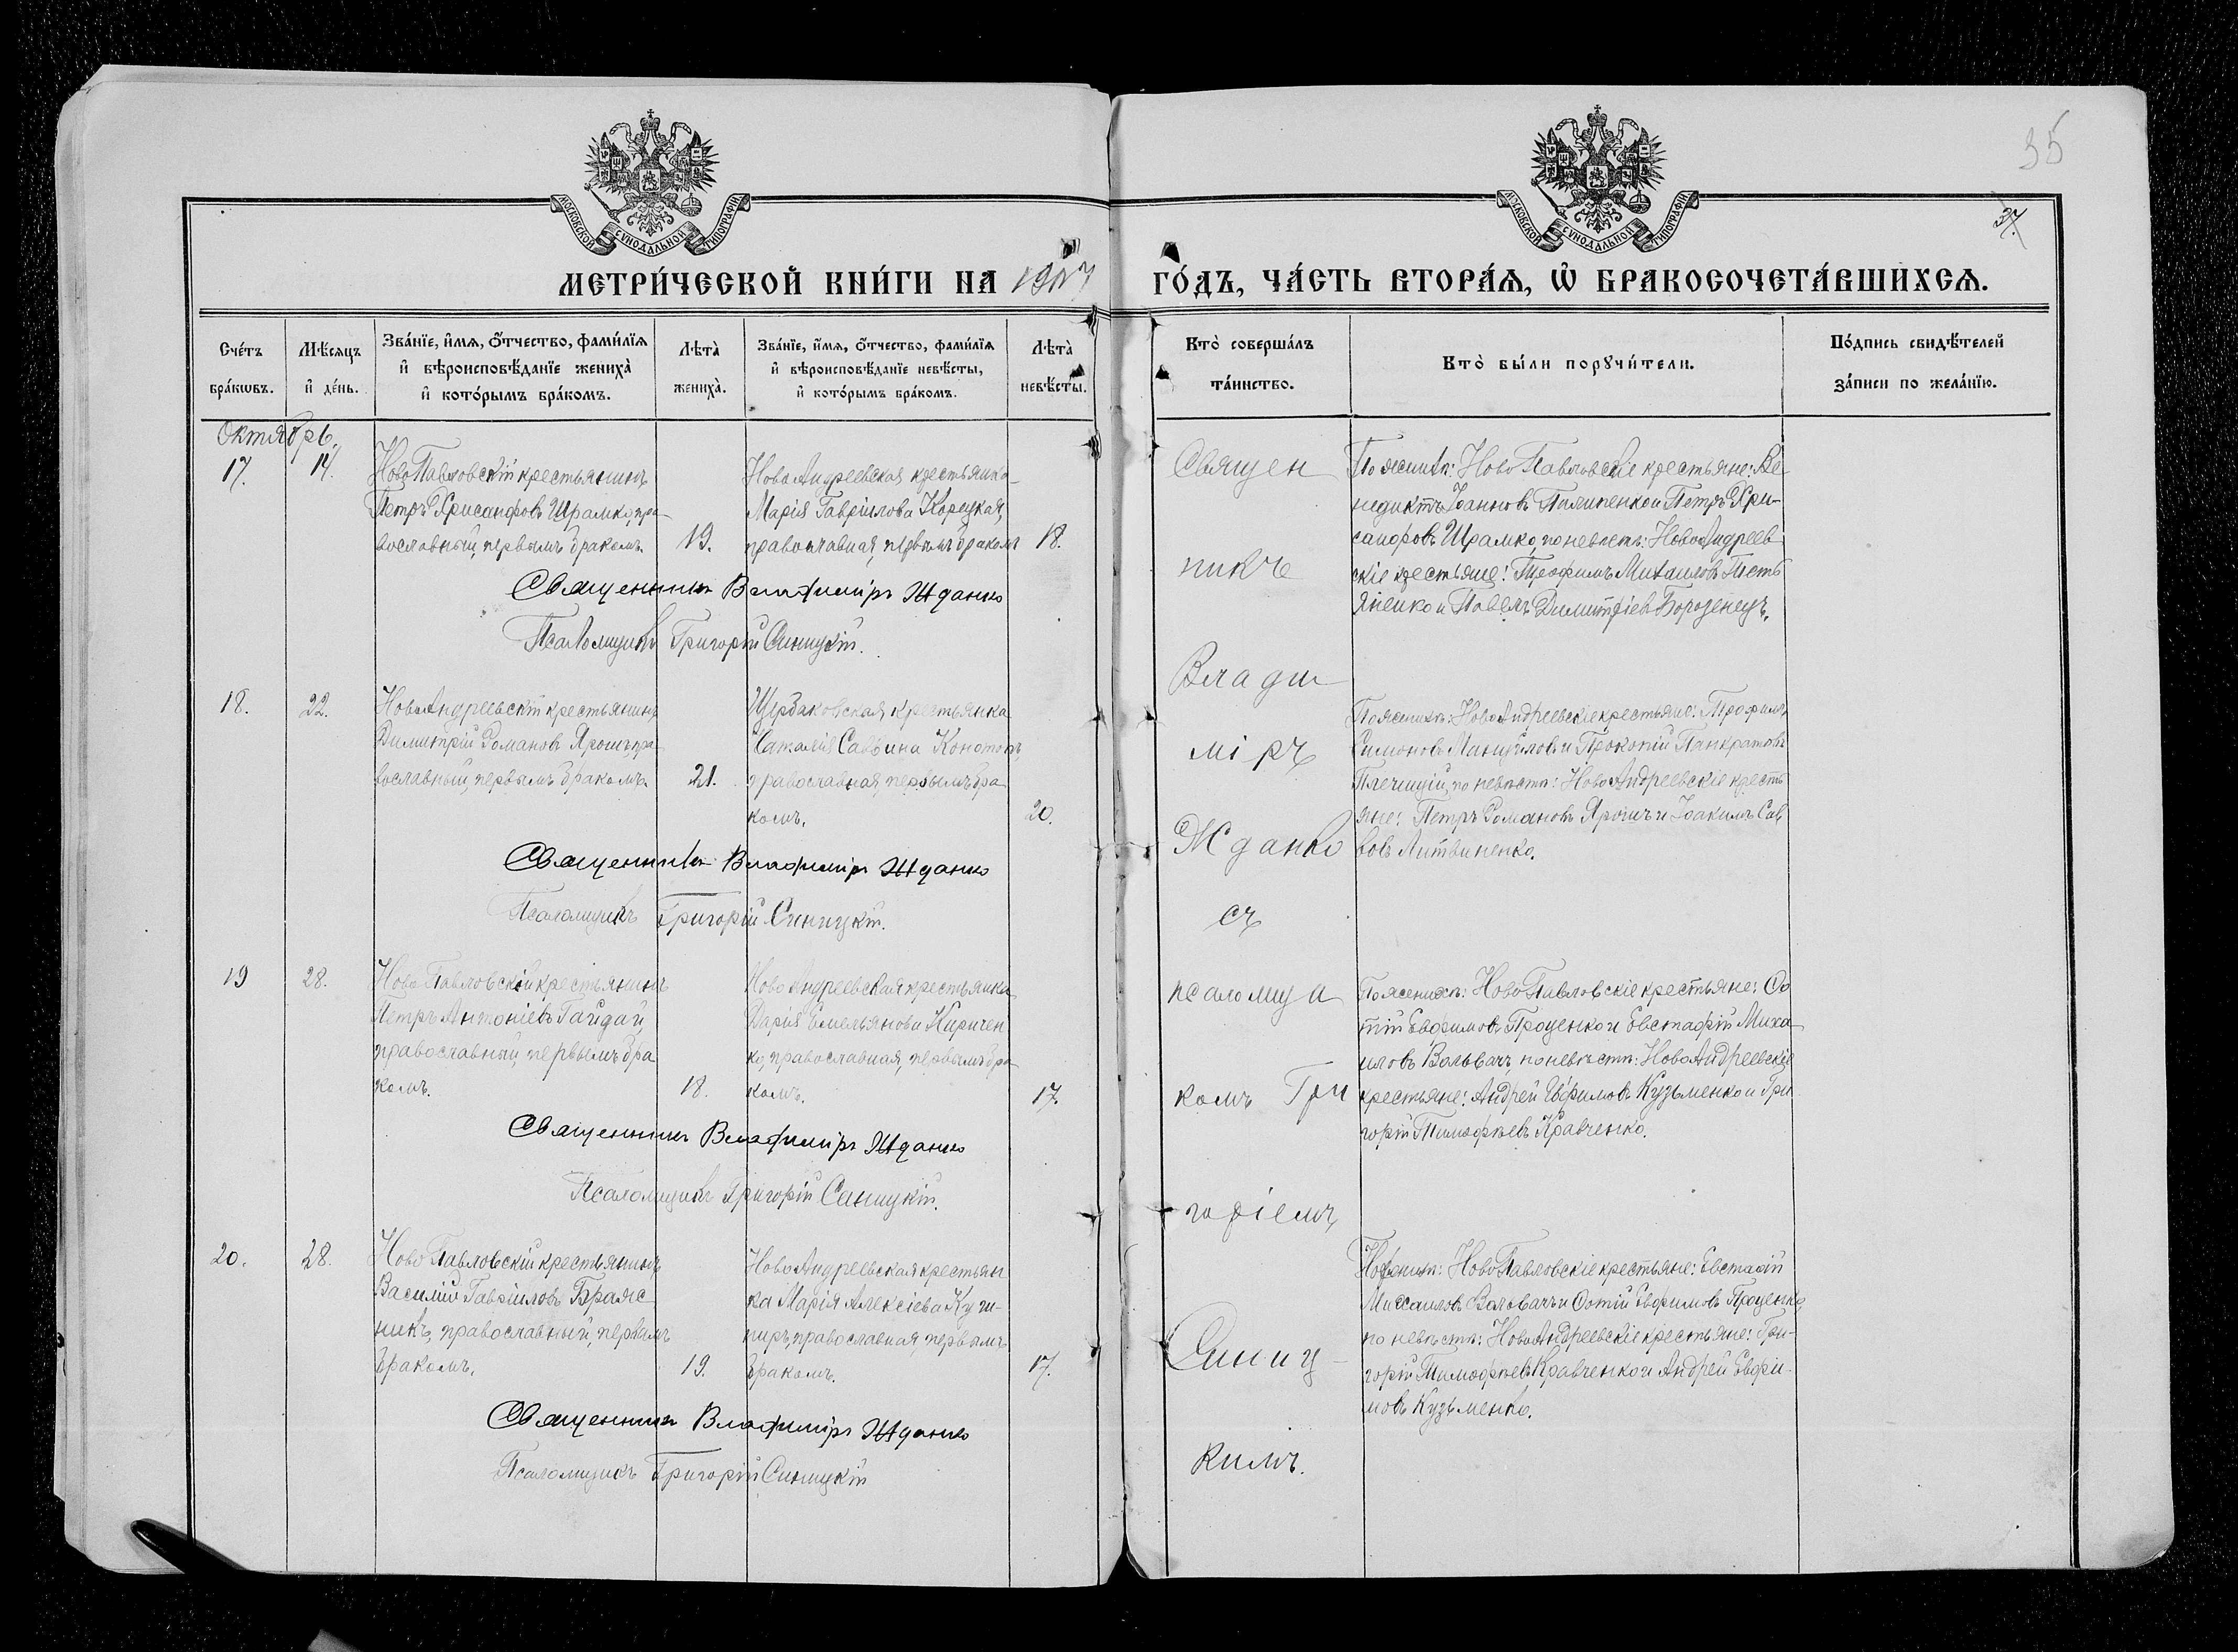 35
37.
МОСКОВСКОЙ СѴНОДАЛЬНОЙ ТИПОГРАФІИ
МОСКОВСКОЙ СѴНОДАЛЬНОЙ ТИПОГРАФІИ
МЕТРИ́ЧЕСКОЙ КНИ́ГИ НА 1907 ГО́ДЪ, ЧА́СТЬ ВТОРА́Ѧ, Ѡ҆ БРАКОСОЧЕТА́ВШИХСѦ.
Сче́тъ бра́кѡвъ.
Мѣ́сяцъ и҆ де́нь.
Зва́нїе, и҆́мѧ, ѻ҆́тчество, фами́лїѧ и҆ вѣроисповѣ́данїе жениха̀ и҆ кото́рымъ бра́комъ.
Лѣта̀ жениха̀.
Зва́нїе, и҆́мѧ, ѻ҆́тчество, фами́лїѧ и҆ вѣроисповѣ́данїе невѣ́сты, и҆ кото́рымъ бра́комъ.
Лѣта̀ невѣ́сты.
Кто̀ соверша́лъ та́инство.
Кто̀ бы́ли порꙋчи́тели.
По́дпись свидѣ́телей за́писи по жела́нїю.
Октябрь.
17. 14.
НовоПавловскій крестьянинъ
Петръ Хрисанфовъ Шрамко, пра-
вославный, первымъ бракомъ.
19.
НовоАндреевская крестьянка
Марія Гавріилова Корецкая,
православная, первымъ бракомъ
18.
По женихѣ: НовоПавловскіе крестьяне: Ве
недиктъ Іоанновъ Пилипенко и Петръ Хри-
санфовъ Шрамко, по невѣстѣ: НовоАндреев
скіе крестьяне: Трофимъ Михаиловъ Пість
яненко и Павелъ Димитріевъ Бороденецъ.
Священникъ Владиміръ Жданко
Псаломщикъ Григорій Синицкій.
18. 22.
НовоАндреевскій крестьянинъ
Димитрій Романовъ Ярошъ, пра-
вославный, первымъ бракомъ.
21.
Щербаковская крестьянка
Наталія Саввина Конотопъ,
православная, первымъ бра
комъ.
20.
По женихѣ: НовоАндреевскіе крестьяне: Трофимъ
Симоновъ Мануйловъ и Прокопій Панкратовъ
по невѣстѣ: НовоАндреевскіе кресть
яне: Петръ Романовъ Ярошъ и Іоакимъ Сав
вовъ Литвиненко.
Священникъ Владиміръ Жданко
Псаломщикъ Григорій Синицкій.
19 28.
НовоПавловскій крестьянинъ
Петръ Антоніевъ Гайдай,
православный, первымъ бра
комъ.
18.
НовоАндреевская крестьянка
Дарія Емельянова Киричен
ко, православная, первымъ бра
комъ.
17.
По женихѣ: НовоПавловскіе крестьяне: Фо
тій Евфимовъ Проценко и Евстафій Миха
иловъ Вальвачъ, по невѣстѣ: НовоАндреевскіе
крестьяне: Андрей Евфимовъ Кузьменко и Гри
горій Тимофѣевъ Кравченко.
Священникъ Владиміръ Жданко
Псаломщикъ Григорій Синицкій.
20. 28.
НовоПавловскій крестьянинъ
Василій Гавріиловъ Браж
никъ, православный, первымъ
бракомъ.
19.
НовоАндреевская крестьян
ка Марія Алексіева Куши-
ниръ, православная, первымъ
бракомъ.
17.
НовоПавловскіе крестьяне: Евстафій
Михаиловъ Валовачъ и Фотій Евфимовъ Проценко,
по невѣстѣ: НовоАндреевскіе крестьяне: Гри-
горій Тимофѣевъ Кравченко и Андрей Евфи-
мовъ Кузьменко.
Священникъ Владиміръ Жданко
Псаломщикъ Григорій Синицкій
Священ
никъ
Влади
міръ
Жданко
съ
псаломщи
комъ Гри
горіемъ
Синиц
кимъ.